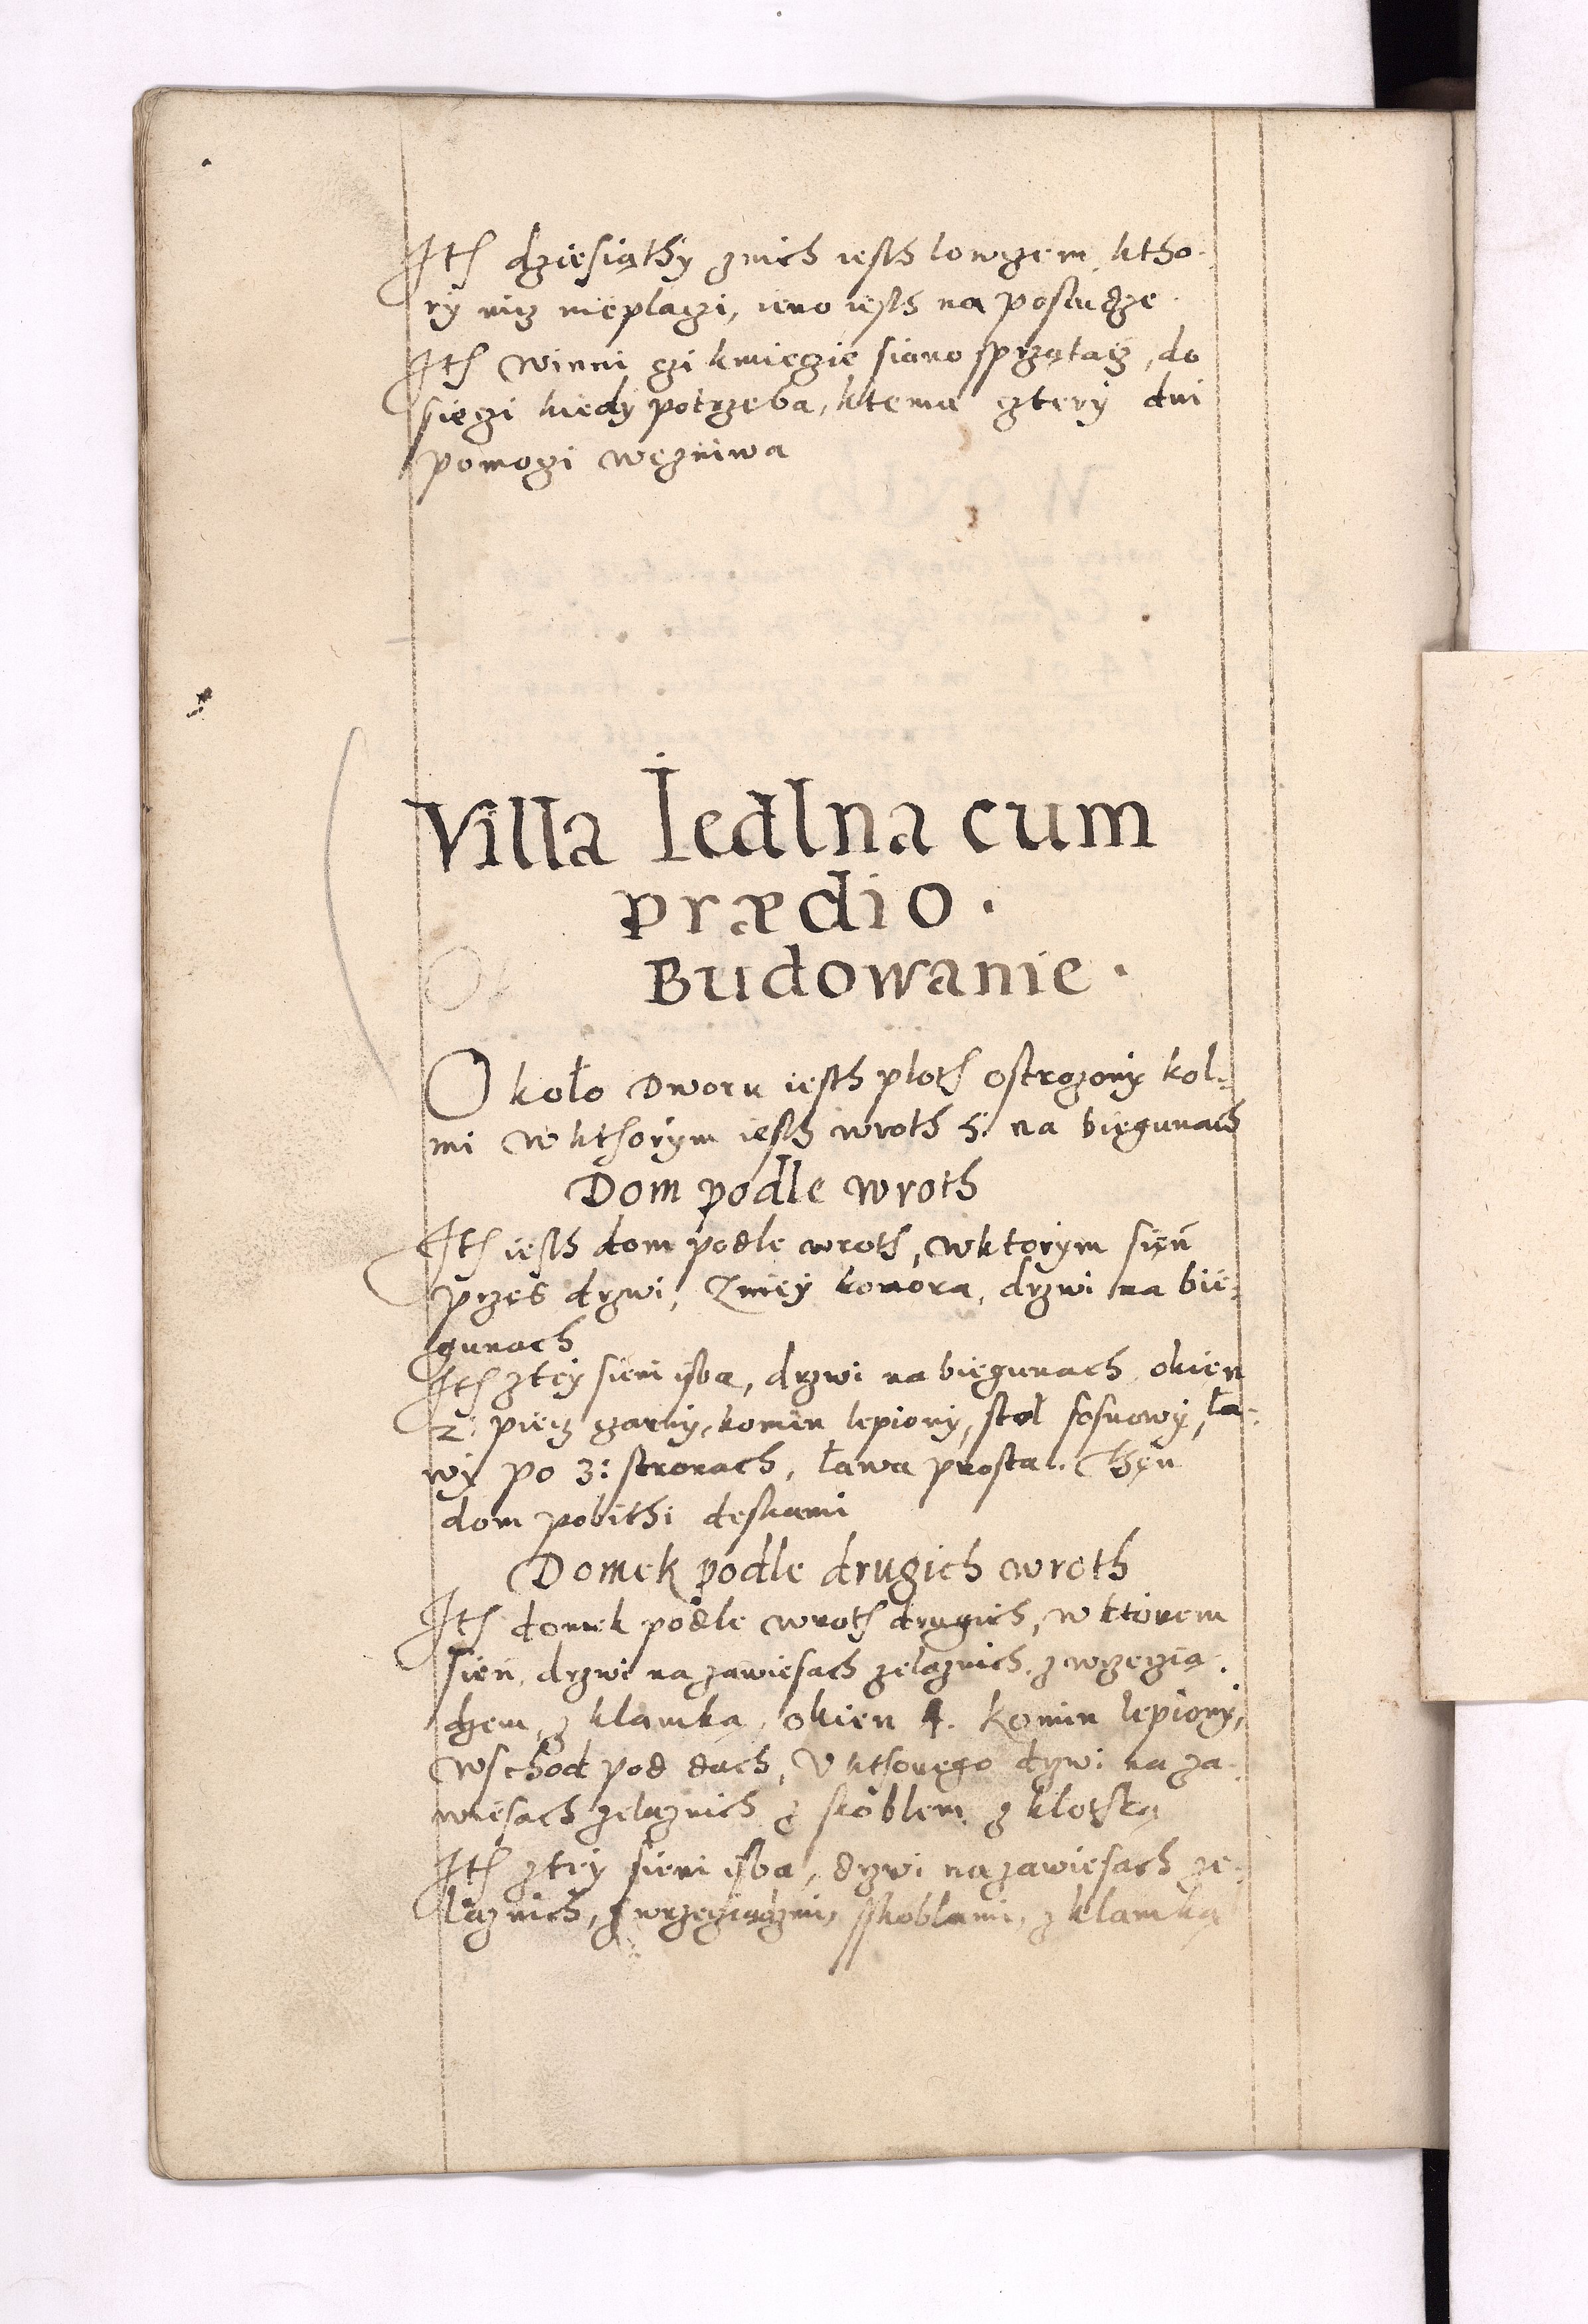 Ith dziesiąthy znich iesth lowczem, ktho-
ry nicz nieplaczi, ieno iesth na posludze
Ith winni czi kmiecie siano sprzątacz, do
sieczi kiedy potrzeba, ktemu cztery dni
pomogi wezniwa
Villa Iedlna cum
prædio.
Budowanie.
Około Dworu iesth ploth ostrozony kol-
mi w kthorym iesth wroth 5. na biegunach
Dom podle wroth
Ith iesth dom podle wroth, wktorym sień
przes drzwi, Zniey komora, drzwi na bie-
gunach
Ith ztey sieni isba, drzwi na biegunach, okien
2: piecz czarny, komin lepiony, stoł sosnowy, ła-
wy po 3: stronach, ława prosta. Then
dom pobithi deskami
Domek podle drugich wroth
Ith domek podle wroth drugich, w ktorem
sień, drzwi na zawiesach zelaznich, z wrzecią-
dzem, z klamką, okien 4. komin lepiony,
Wschod pod dach, V kthorego drzwi na za-
wiesach zelaznich z skoblem z klothką
Ith ztey sieni isba, drzwi na zawiesach ze-
laznich, z wrzeciądzmi, sskoblami, z klamką